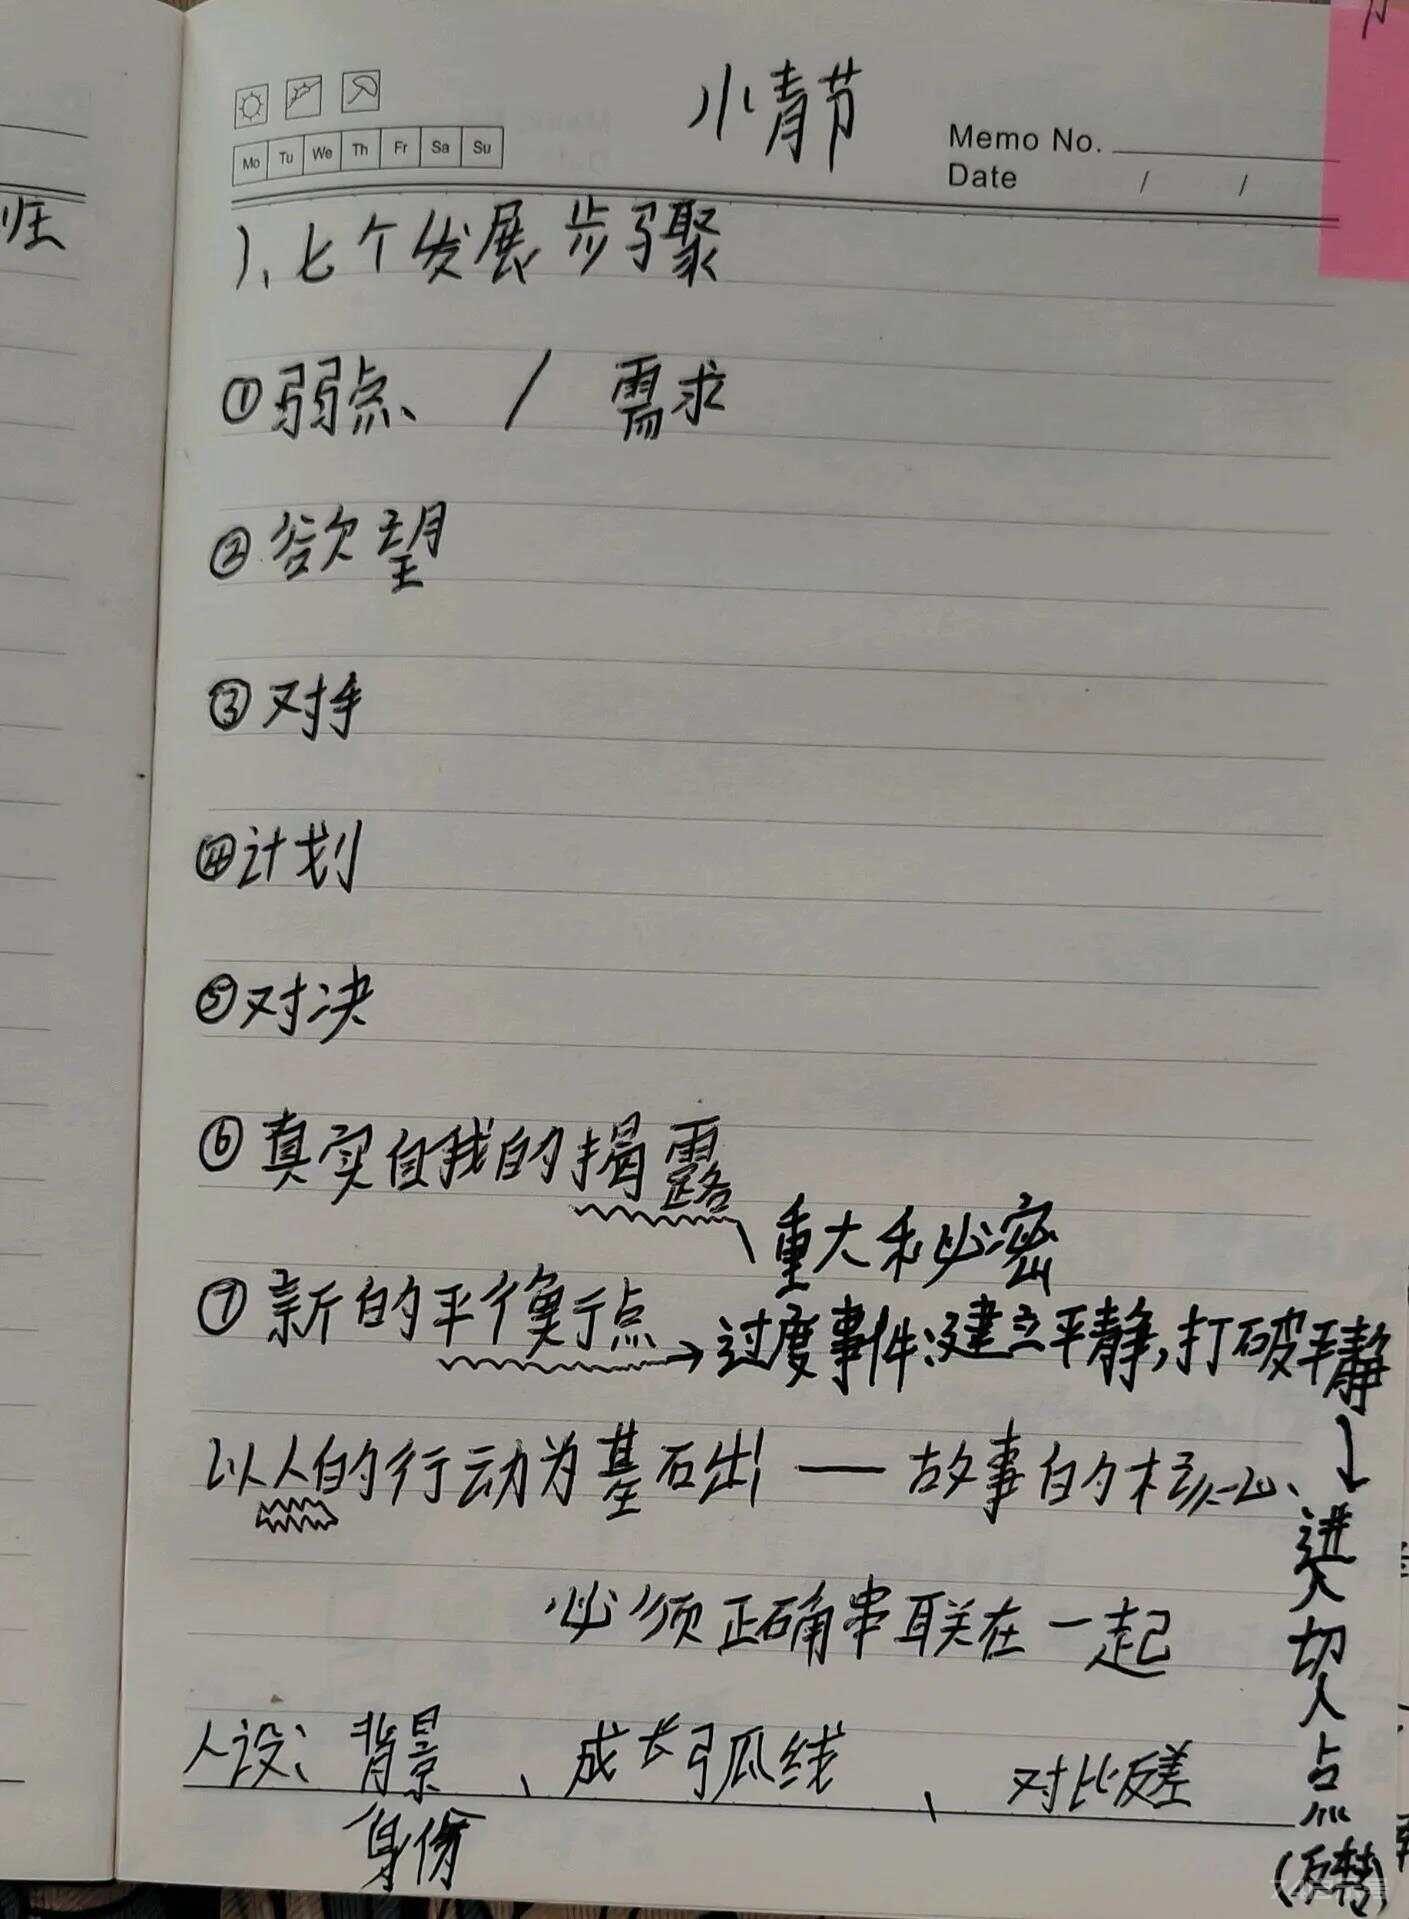 小青节
Memo No.
Mo Tu We Th Fr Sa Su
Date / /
班
1、七个发展步骤
①弱点、 / 需求
②欲望
③对手
④计划
⑤对决
⑥真实自我的揭露
重大秘密
⑦新的平衡点→过度事件:建立平静,打破平静
↓
进入切入点
(反转)
以人的行动为基石出 — 故事的核心、
必须正确串联在一起
人设: 背景 、成长弧线 、对比反差
身份